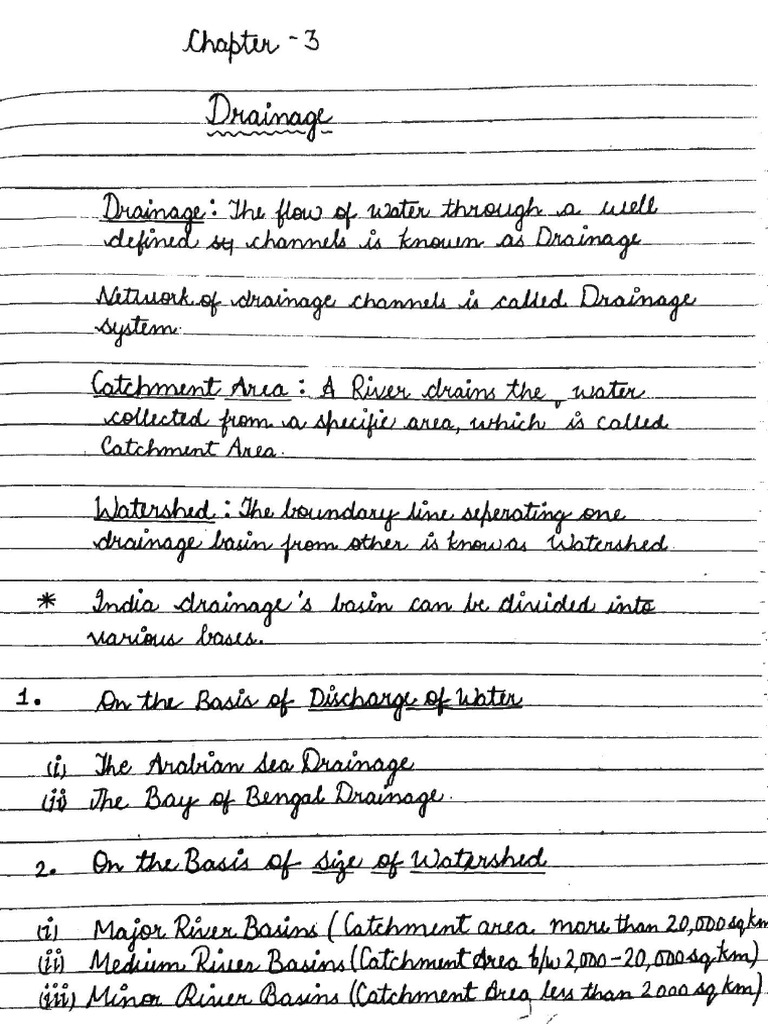 Chapter - 3
Drainage
Drainage: The flow of water through a well
defined channels is known as Drainage
Network of drainage channels is called Drainage
system.
Catchment Area: A River drains the water
collected from a specific area, which is called
Catchment Area.
Watershed: The boundary line seperating one
drainage basin from other is know as Watershed.
* India drainage's basin can be divided into
various bases.
1. On the Basis of Discharge of Water
(i) The Arabian Sea Drainage
(ii) The Bay of Bengal Drainage.
2. On the Basis of size of Watershed
(i) Major River Basins (Catchment area more than 20,000 sq km
(ii) Medium River Basins (Catchment Area b/w 2,000-20,000 sq km)
(iii) Minor River Basins (Catchment Area less than 2000 sq km)